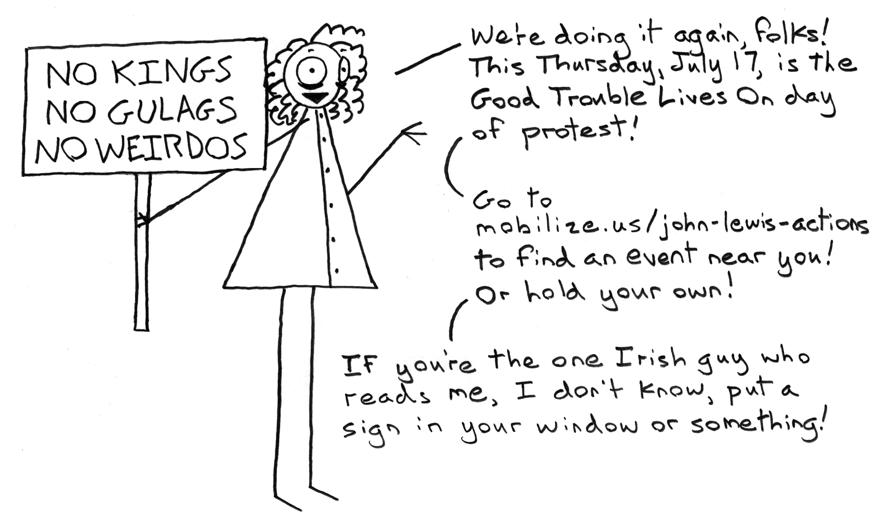 NO KINGS
NO GULAGS
NO WEIRDOS
We're doing it again, folks!
This Thursday, July 17, is the
Good Trouble Lives On day
of protest!
Go to
mobilize.us/john-lewis-actions
to find an event near you!
Or hold your own!
If you're the one Irish guy who
reads me, I don't know, put a
sign in your window or something!